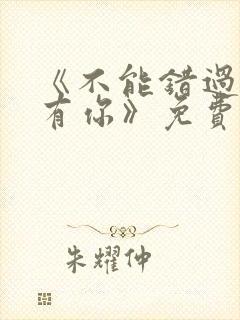 《不能错過
有你》免費
朱耀仲